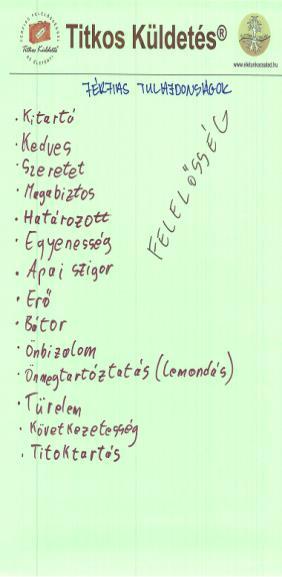 Titkos Küldetés®
Titkos Küldetés
www.eletunkacsalad.hu
FÉRFIAS TULAJDONSÁGOK
FELELŐSSÉG
· Kitartó
· Kedves
· Szeretet
· Magabiztos
· Határozott
· Egyenesség
· Apai szigor
· Erő
· Bátor
· Önbizalom
· Önmegtartóztatás (lemondás)
· Türelem
· Következetesség
· Titoktartás